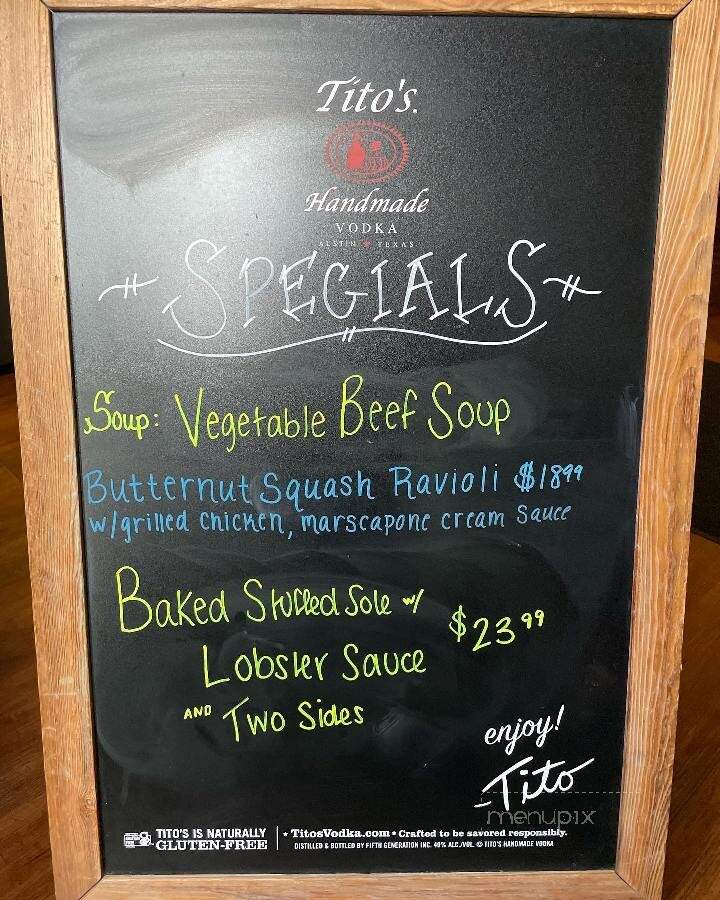 Tito's
Handmade
VODKA
AUSTIN TEXAS
SPECIALS
Soup: Vegetable Beef Soup
Butternut Squash Ravioli $18.99
w/grilled chicken, marscapone cream sauce
Baked Stuffed Sole w/ $23.99
Lobster Sauce
AND Two Sides
enjoy!
-Tito
menupix
TITO'S IS NATURALLY
GLUTEN-FREE
• TitosVodka.com • Crafted to be savored responsibly.
DISTILLED & BOTTLED BY FIFTH GENERATION INC. 40% ALC./VOL. © TITO'S HANDMADE VODKA